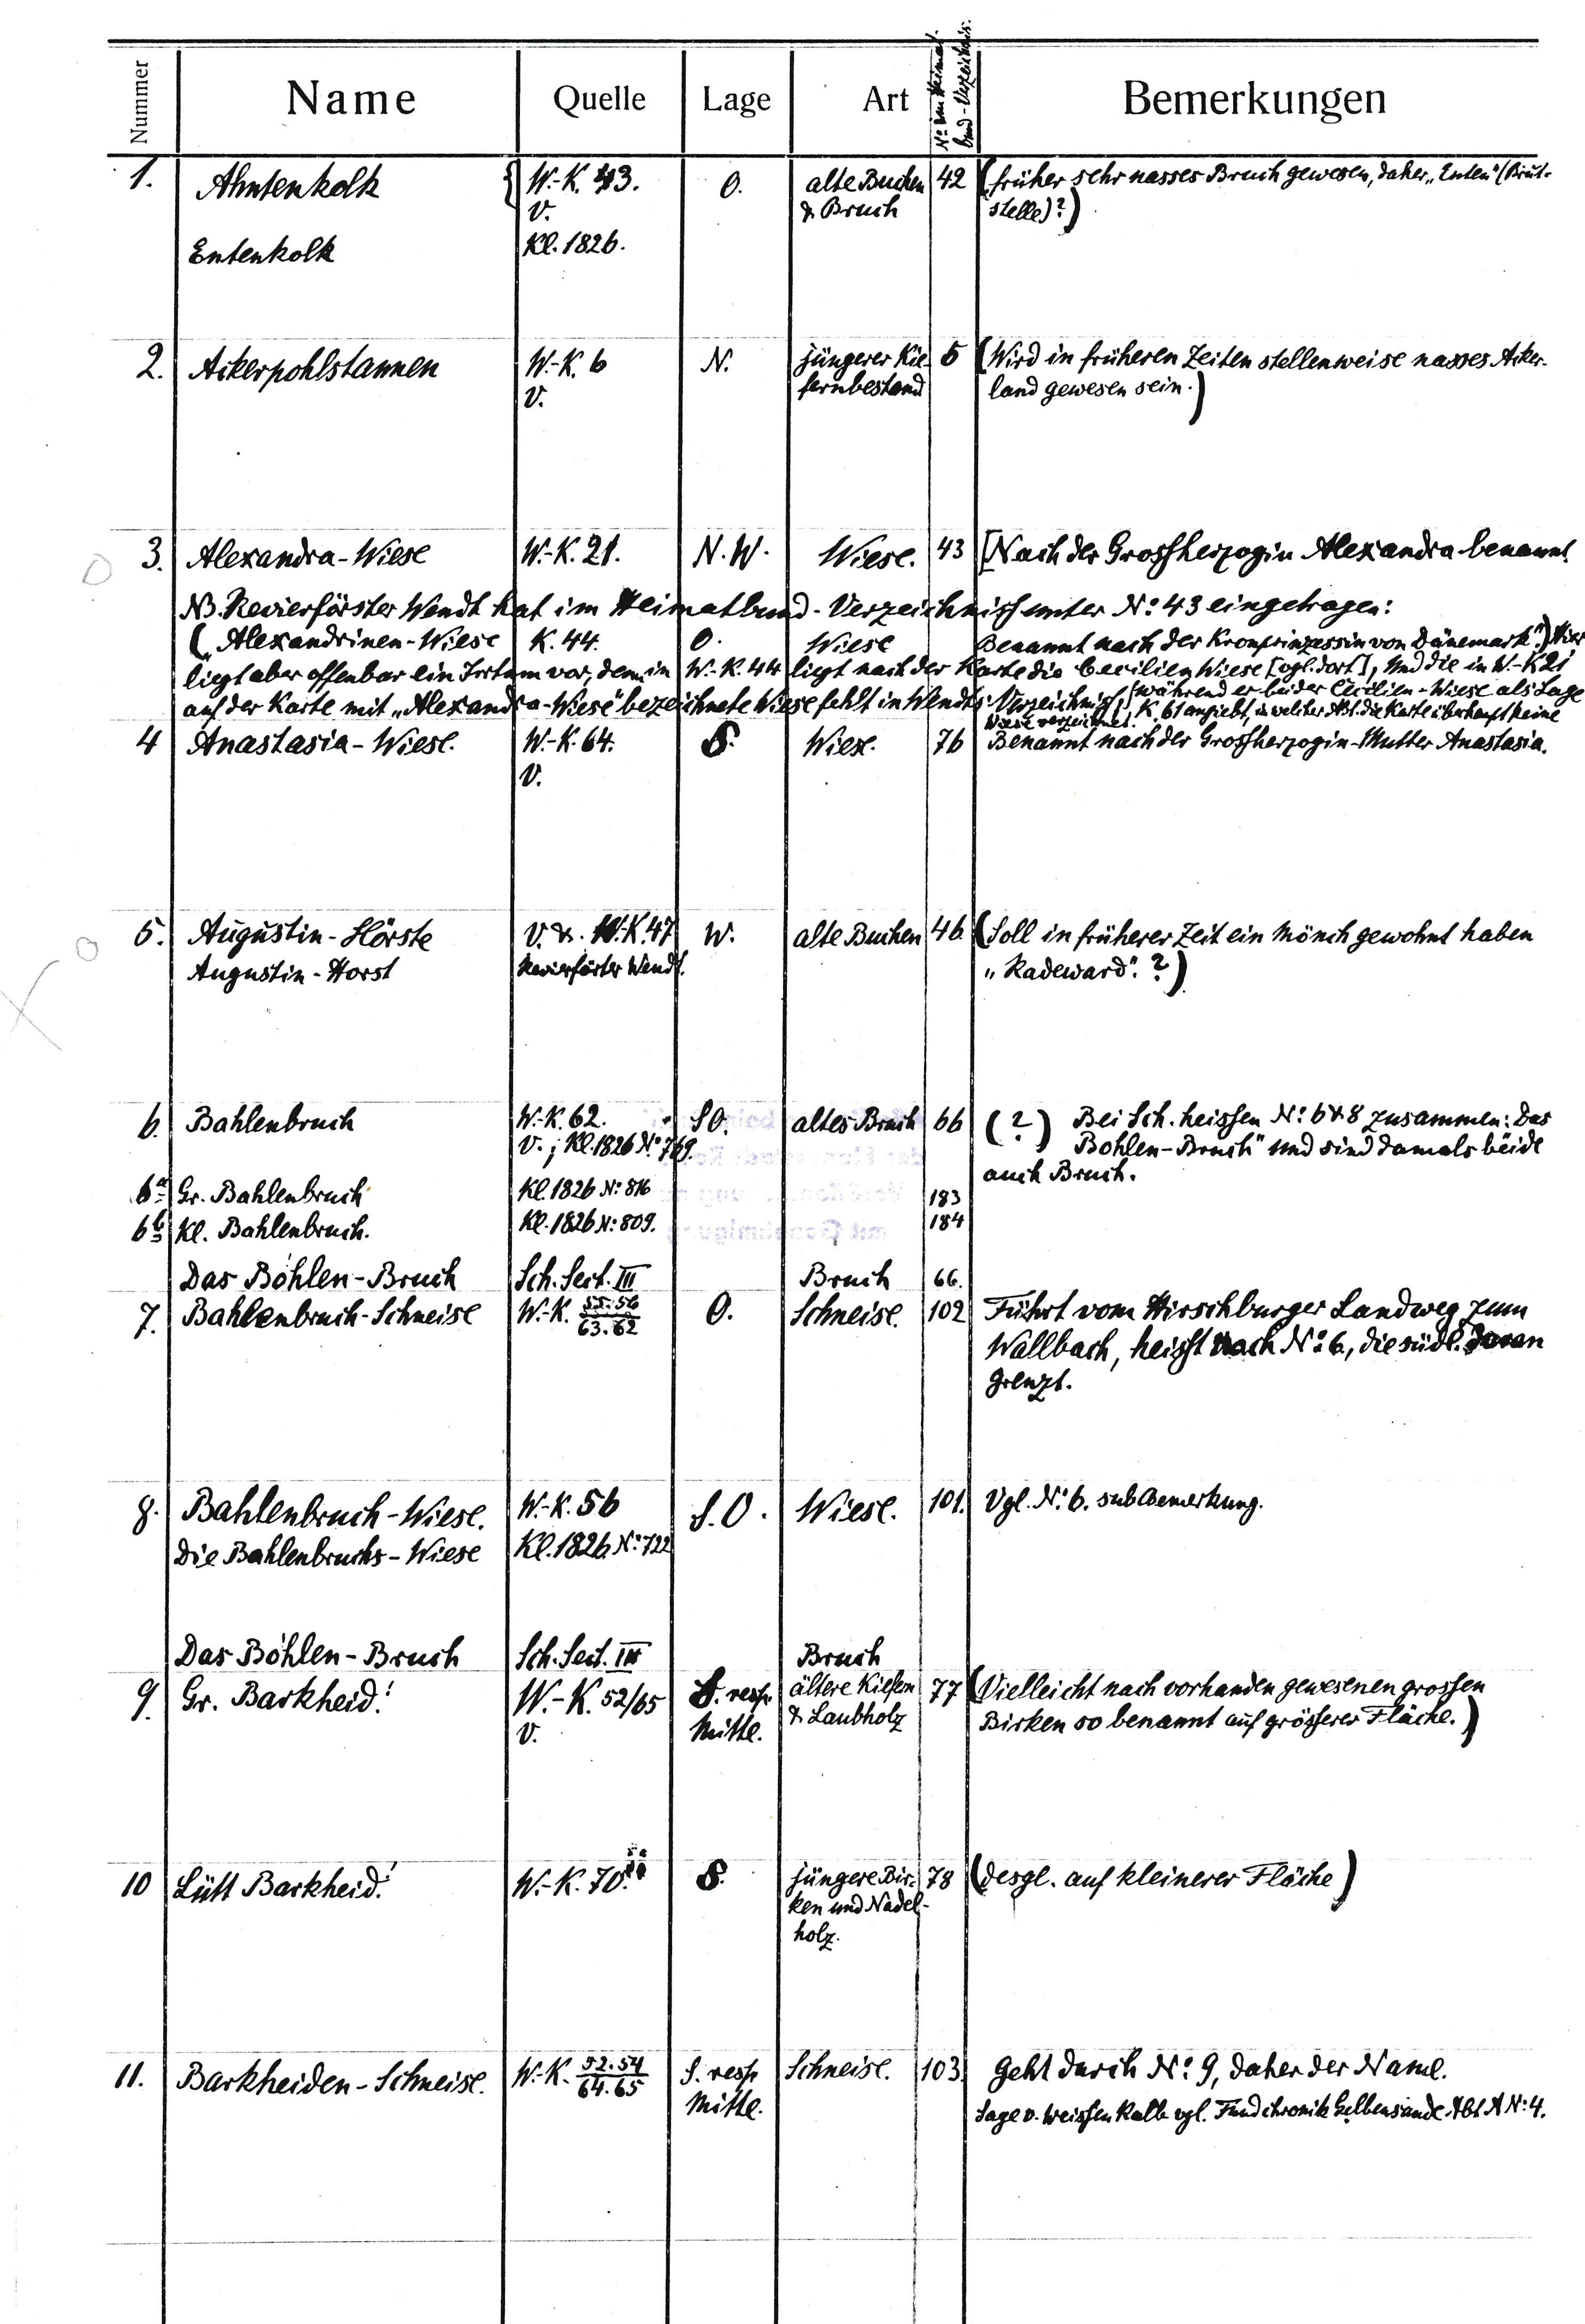 Nummer Name Quelle Lage Art Nº im Heimat- bund-Verzeichnis. Bemerkungen
1. Ahntenkolk W.-K. 43. O. alte Buchen 42 (früher sehr nasses Bruch gewesen, daher „Enten" (Brut-
V. & Bruch stelle)?)
Entenkolk Kl. 1826.
2. Ackerpohlstannen W.-K. 6 N. jüngerer Kie- 5 (Wird in früheren Zeiten stellenweise nasses Acker-
V. fernbestand land gewesen sein.)
3. Alexandra-Wiese W.-K. 21. N.W. Wiese. 43 [Nach der Grossherzogin Alexandra benannt
NB. Revierförster Wendt hat im Heimatbund-Verzeichniss unter Nº 43 eingetragen:
(„Alexandrinen-Wiese K. 44. O. Wiese Benannt nach der Kronprinzessin von Dänemark".) Hier
liegt aber offenbar ein Irrtum vor, denn in W.-K. 44 liegt nach der Karte die Cecilien Wiese [vgl. dort], und die in W.-K 21
auf der Karte mit „Alexandra-Wiese" bezeichnete Wiese fehlt in Wendts Verzeichniss, während er bei der Cecilien-Wiese als Lage
K. 61 angiebt, in welcher Abt. die Karte überhaupt keine
Wiese verzeichnet.
4 Anastasia-Wiese. W.-K. 64. S. Wiese. 76 Benannt nach der Grossherzogin-Mutter Anastasia.
V.
5. Augustin-Hörste V. & W.-K. 47 W. alte Buchen 46. (Soll in früherer Zeit ein Mönch gewohnt haben
Augustin-Horst Revierförster Wendt. „Radeward". ?)
6. Bahlenbruch W.-K. 62. SO. altes Bruch 66 (?) Bei Sch. heissen Nº 6 & 8 zusammen: Das
V.; Kl. 1826 Nº 769. Bohlen-Bruch" und sind damals beide
auch Bruch.
6a Gr. Bahlenbruch Kl. 1826 Nº 816 183
6b Kl. Bahlenbruch. Kl. 1826 Nº 809. 184
Das Bohlen-Bruch Sch. Sect. III Bruch 66.
7. Bahlenbruch-Schneise W.-K. 55.56/63.62 O. Schneise. 102 Führt vom Hirschburger Landweg zum
Wallbach, heisst nach Nº 6, die südl. daran
grenzt.
8. Bahlenbruch-Wiese. W.-K. 56 S.O. Wiese. 101. Vgl. Nº 6. sub Bemerkung.
Die Bahlenbruchs-Wiese Kl. 1826 Nº 722
Das Bohlen-Bruch Sch. Sect. III Bruch
9. Gr. Barkheid! W.-K. 52/65 S. resp. ältere Kiefern 77 (Vielleicht nach vorhanden gewesenen grossen
V. Mitte. & Laubholz Birken so benannt auf grösserer Fläche.)
10 Lütt Barkheid! W.-K. 70. S. jüngere Bir- 78 (desgl. auf kleinerer Fläche)
ken und Nadel-
holz.
11. Barkheiden-Schneise. W.-K. 52.54/64.65 S. resp. Schneise. 103 Geht durch Nº 9, daher der Name.
Mitte. Sage v. weissen Kalb vgl. Fundchronik Gelbensande Abt A Nº 4.